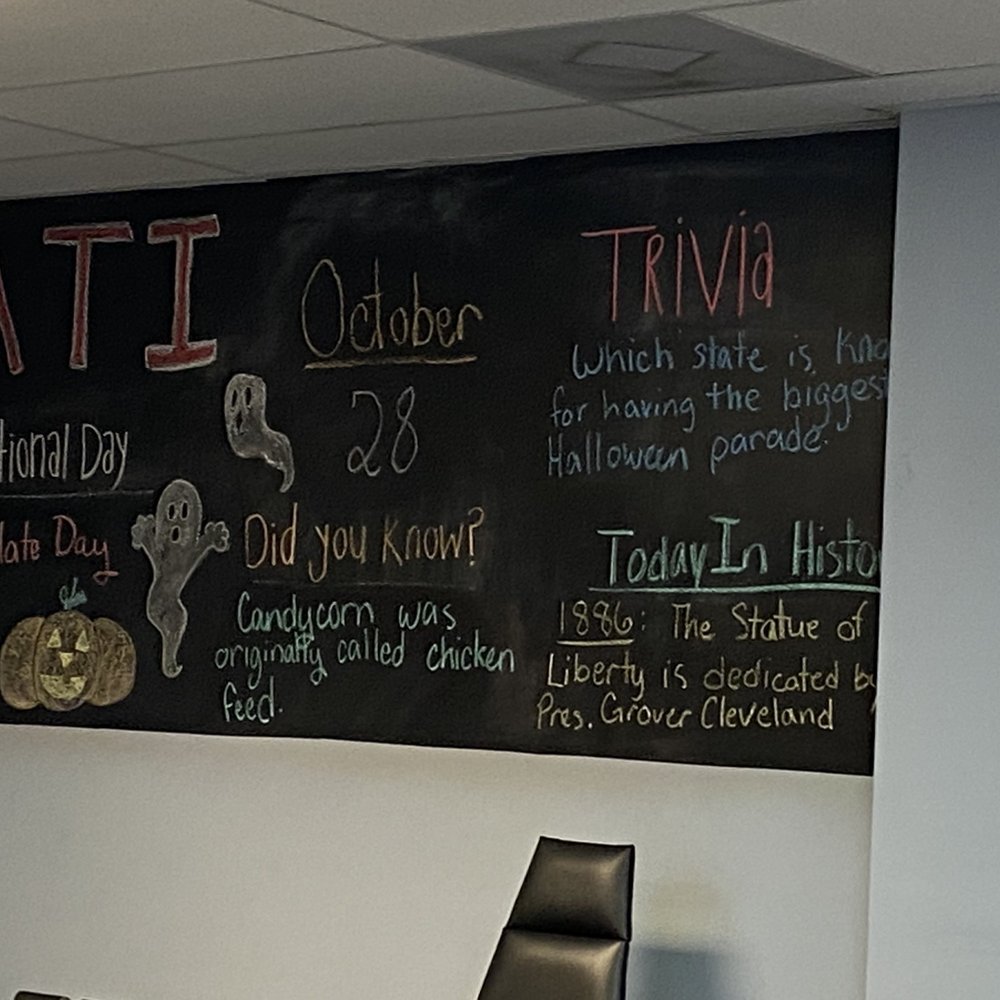 ATI
tional Day
late Day
October
28
Did you Know?
Candycorn was
originally called chicken
feed.
Trivia
Which state is Kno
for having the biggest
Halloween parade.
Today In Histo
1886: The Statue of
Liberty is dedicated by
Pres. Grover Cleveland